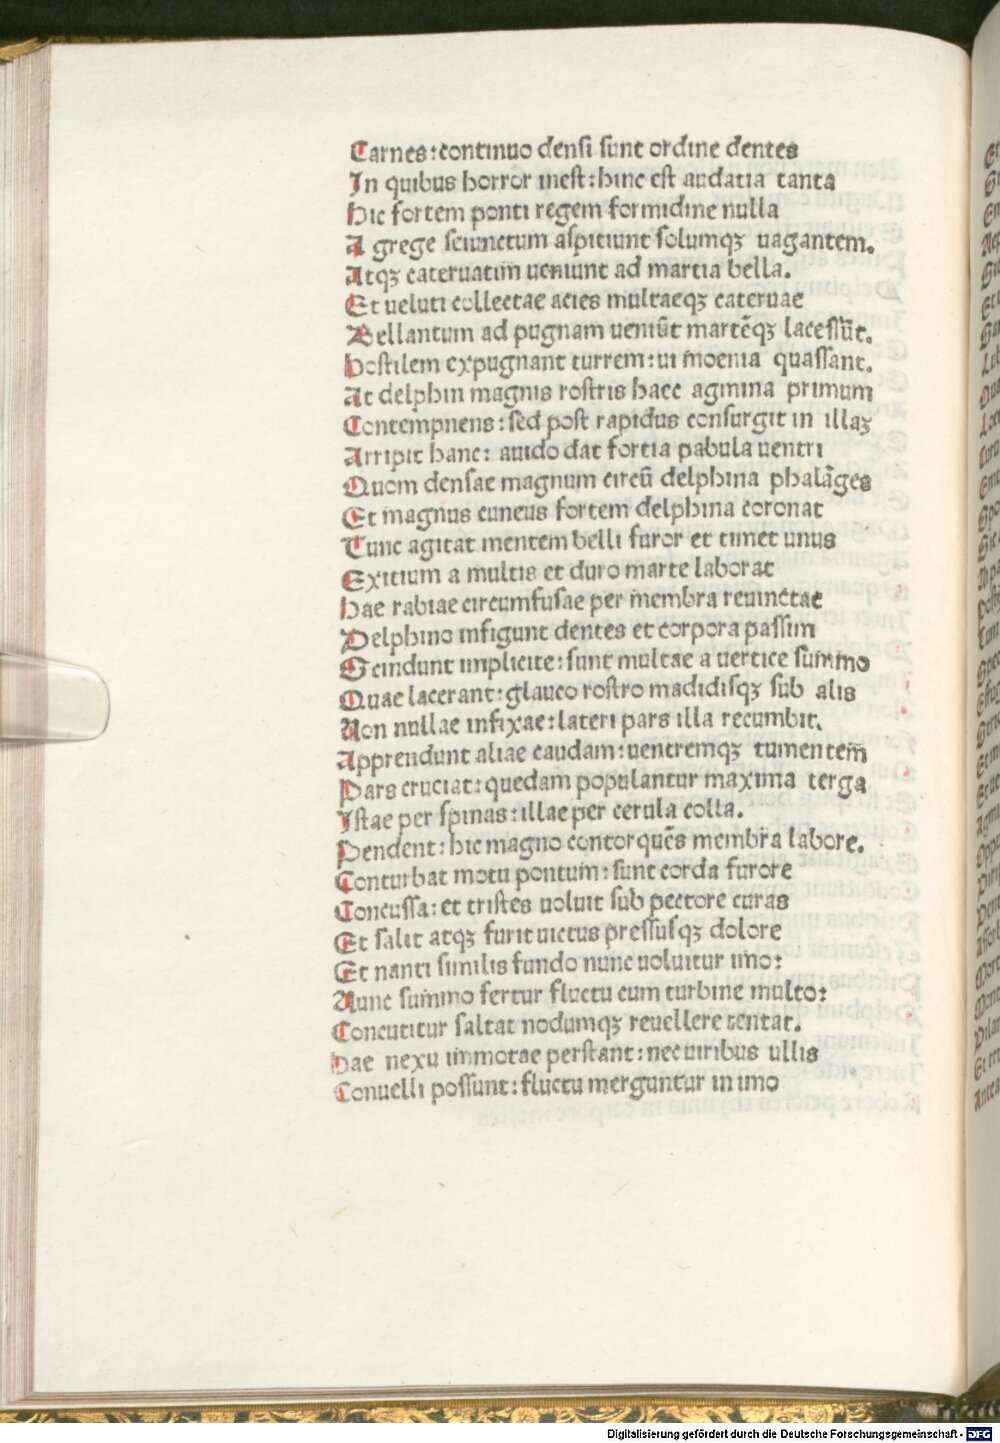 Carnes: continuo densi sunt ordine dentes
In quibus horror inest: hinc est audatia tanta
Hic fortem ponti regem formidine nulla
A grege seiunctum aspitiunt solumqꝫ uagantem.
Atqꝫ cateruatim ueniunt ad martia bella.
Et ueluti collectae acies multaeqꝫ cateruae
Bellantum ad pugnam ueniūt martēqꝫ lacessūt.
Hostilem expugnant turrem: ui moenia quassant.
At delphin magnis rostris haec agmina primum
Contempnens: sed post rapidus consurgit in illaꝫ
Arripit hanc: auido dat fortia pabula uentri
Quom densae magnum circū delphina phalāges
Et magnus cuneus fortem delphina coronat
Tunc agitat mentem belli furor et timet unus
Exitium a multis et duro marte laborat
Hae rabiae circumfusae per membra reuinctae
Delphino infigunt dentes et corpora passim
Scindunt implicite: sunt multae a uertice summo
Quae lacerant: glauco rostro madidisqꝫ sub alis
Non nullae infixae: lateri pars illa recumbit.
Apprendunt aliae caudam: uentremqꝫ tumentem
Pars cruciat: quedam populantur maxima terga
Istae per spinas: illae per cerula colla.
Pendent: hic magno contorquēs membra labore.
Conturbat motu pontum: sunt corda furore
Concussa: et tristes uoluit sub pectore curas
Et salit atqꝫ furit uictus pressusqꝫ dolore
Et nanti similis fundo nunc uoluitur imo:
Nunc summo fertur fluctu cum turbine multo:
Concutitur saltat nodumqꝫ reuellere tentat.
Hae nexu immotae perstant: nec uiribus ullis
Conuelli possunt: fluctu merguntur in imo
Digitalisierung gefördert durch die Deutsche Forschungsgemeinschaft - DFG